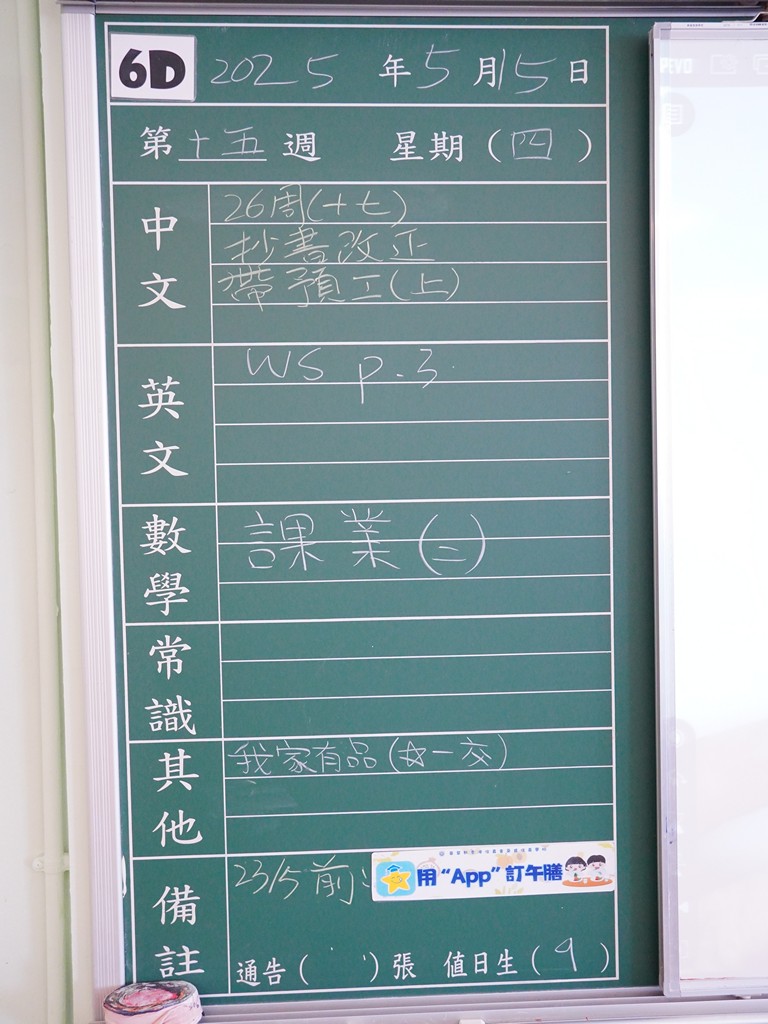 6D 2025 年 5 月 15 日
第 十五 週 星期 ( 四 )
中文
26周(十七)
抄書改正
帶預工(上)
英文
WS p.3
數學
課業(二)
常識
其他
我家有品(☆一交)
備註
23/5前
用“App”訂午膳
通告 ( ) 張 值日生 ( 9 )